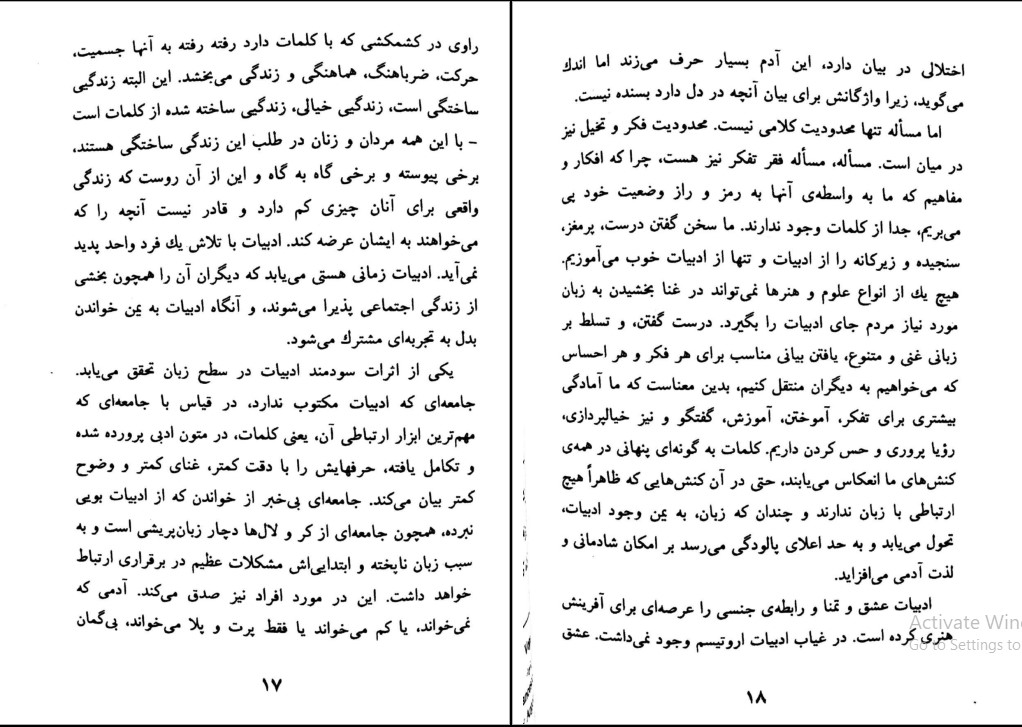 راوی در کشمکشی که با کلمات دارد رفته رفته به آنها جسمیت،
حرکت، ضرباهنگ، هماهنگی و زندگی می‌بخشد. این البته زندگیی
ساختگی است، زندگیی خیالی، زندگیی ساخته شده از کلمات است
- با این همه مردان و زنان در طلب این زندگی ساختگی هستند،
برخی پیوسته و برخی گاه به گاه و این از آن روست که زندگی
واقعی برای آنان چیزی کم دارد و قادر نیست آنچه را که
می‌خواهند به ایشان عرضه کند. ادبیات با تلاش یك فرد واحد پدید
نمی‌آید. ادبیات زمانی هستی می‌یابد که دیگران آن را همچون بخشی
از زندگی اجتماعی پذیرا می‌شوند، و آنگاه ادبیات به یمن خواندن
بدل به تجربه‌ای مشترك می‌شود.
یکی از اثرات سودمند ادبیات در سطح زبان تحقق می‌یابد.
جامعه‌ای که ادبیات مکتوب ندارد، در قیاس با جامعه‌ای که
مهم‌ترین ابزار ارتباطی آن، یعنی کلمات، در متون ادبی پرورده شده
و تکامل یافته، حرفهایش را با دقت کمتر، غنای کمتر و وضوح
کمتر بیان می‌کند. جامعه‌ای بی‌خبر از خواندن که از ادبیات بویی
نبرده، همچون جامعه‌ای از کر و لال‌ها دچار زبان‌پریشی است و به
سبب زبان ناپخته و ابتدایی‌اش مشکلات عظیم در برقراری ارتباط
خواهد داشت. این در مورد افراد نیز صدق می‌کند. آدمی که
نمی‌خواند، یا کم می‌خواند یا فقط پرت و پلا می‌خواند، بی‌گمان
۱۷
اختلالی در بیان دارد، این آدم بسیار حرف می‌زند اما اندك
می‌گوید، زیرا واژگانش برای بیان آنچه در دل دارد بسنده نیست.
اما مسأله تنها محدودیت کلامی نیست. محدودیت فکر و تخیل نیز
در میان است. مسأله، مسأله فقر تفکر نیز هست، چرا که افکار و
مفاهیم که ما به واسطه‌ی آنها به رمز و راز وضعیت خود پی
می‌بریم، جدا از کلمات وجود ندارند. ما سخن گفتن درست، پرمغز،
سنجیده و زیرکانه را از ادبیات و تنها از ادبیات خوب می‌آموزیم.
هیچ یك از انواع علوم و هنرها نمی‌تواند در غنا بخشیدن به زبان
مورد نیاز مردم جای ادبیات را بگیرد. درست گفتن، و تسلط بر
زبانی غنی و متنوع، یافتن بیانی مناسب برای هر فکر و هر احساس
که می‌خواهیم به دیگران منتقل کنیم، بدین معناست که ما آمادگی
بیشتری برای تفکر، آموختن، آموزش، گفتگو و نیز خیالپردازی،
رؤیا پروری و حس کردن داریم. کلمات به گونه‌ای پنهانی در همه‌ی
کنش‌های ما انعکاس می‌یابند، حتی در آن کنش‌هایی که ظاهراً هیچ
ارتباطی با زبان ندارند و چندان که زبان، به یمن وجود ادبیات،
تحول می‌یابد و به حد اعلای پالودگی می‌رسد بر امکان شادمانی و
لذت آدمی می‌افزاید.
ادبیات عشق و تمنا و رابطه‌ی جنسی را عرصه‌ای برای آفرینش
هنری کرده است. در غیاب ادبیات اروتیسم وجود نمی‌داشت. عشق
۱۸
Activate Win
Go to Settings to